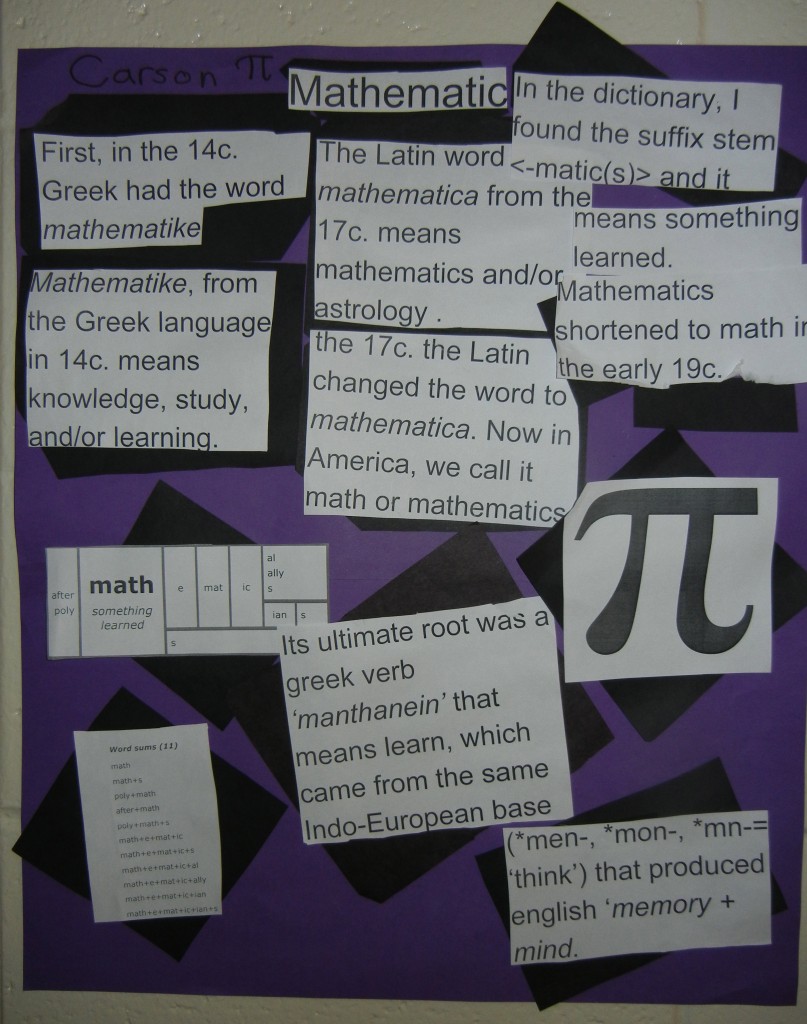 Carson π
Mathematic
First, in the 14c.
Greek had the word
mathematike
Mathematike, from
the Greek language
in 14c. means
knowledge, study,
and/or learning.
The Latin word
mathematica from the
17c. means
mathematics and/or
astrology .
the 17c. the Latin
changed the word to
mathematica. Now in
America, we call it
math or mathematics
In the dictionary, I
found the suffix stem
<-matic(s)> and it
means something
learned.
Mathematics
shortened to math in
the early 19c.
π
after
poly
math
something
learned
e
mat
ic
al
ally
s
ian
s
s
Its ultimate root was a
greek verb
‘manthanein’ that
means learn, which
came from the same
Indo-European base
(*men-, *mon-, *mn-=
‘think’) that produced
english ‘memory +
mind.
Word sums (11)
math
math+s
poly+math
after+math
poly+math+s
math+e+mat+ic
math+e+mat+ic+s
math+e+mat+ic+al
math+e+mat+ic+ally
math+e+mat+ic+ian
math+e+mat+ic+ian+s